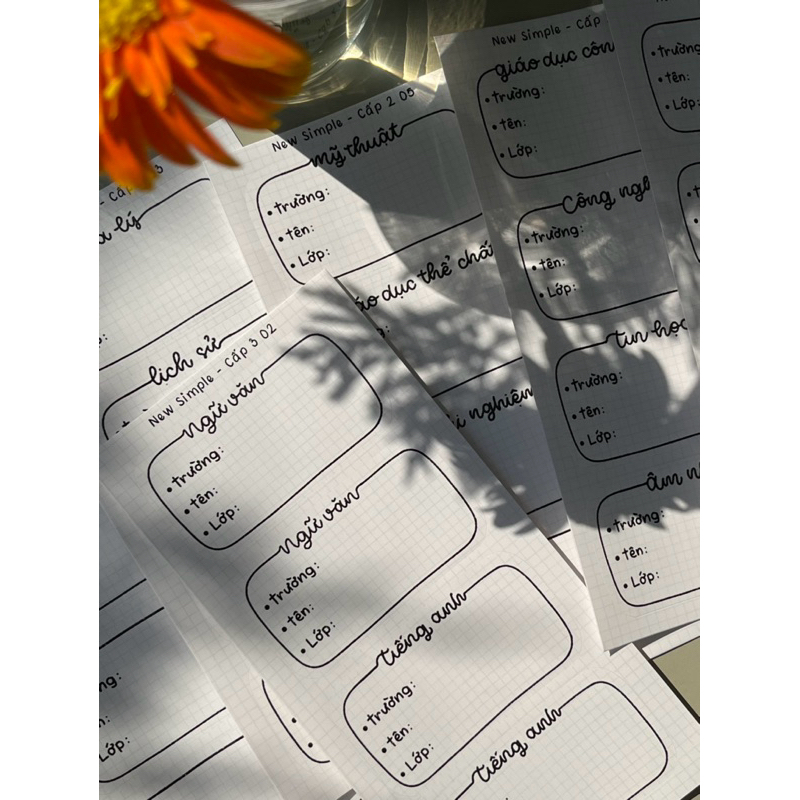 New Simple - Cấp 3 02
ngữ văn
• Trường:
• Tên:
• Lớp:
ngữ văn
• Trường:
• Tên:
• Lớp:
tiếng anh
• Trường:
• Tên:
• Lớp:
tiếng anh
New Simple - Cấp 2 05
mỹ thuật
• Trường:
• Tên:
• Lớp:
dục thể
nghiệm
New Simple - Cấp
giáo dục
• Trường:
• Tên:
• Lớp:
Công
• Trường:
• Tên:
• Lớp:
tin học
• Trường:
• Tên:
• Lớp:
âm
• Trường:
• Tên:
• Lớp:
• Tên:
• Lớp:
- Cấp 3
lý
lịch sử
Lớp: